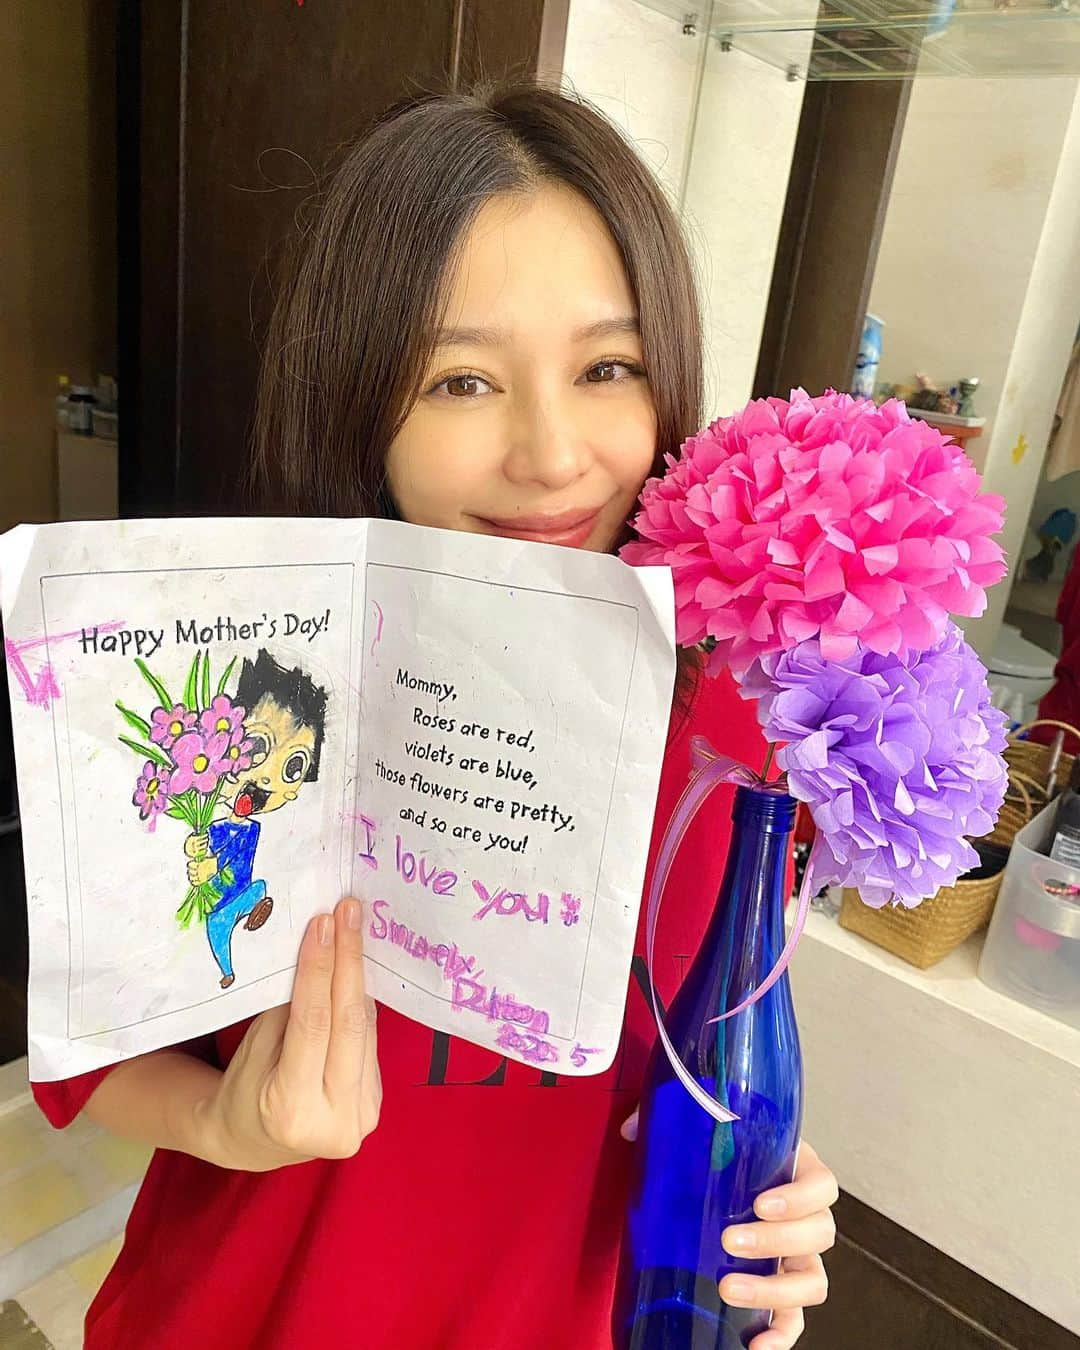 Happy Mother's Day!
Mommy,
Roses are red,
violets are blue,
those flowers are pretty,
and so are you!
I love you
2020 5